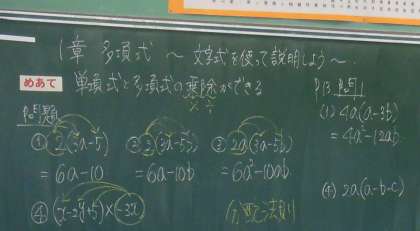 1章 多項式 ～ 文字式を使って説明しよう～
めあて 単項式と多項式の乗除ができる
× ÷
問題
① 2(3a-5)
=6a-10
② 2(3a-5b)
=6a-10b
③ 2a(3a-5b)
=6a²-10ab
④ (x-2y+5)×(-3x)
P13 問1
(1) 4a(a-3b)
=4a²-12ab
(4) 2a(a-b-c)